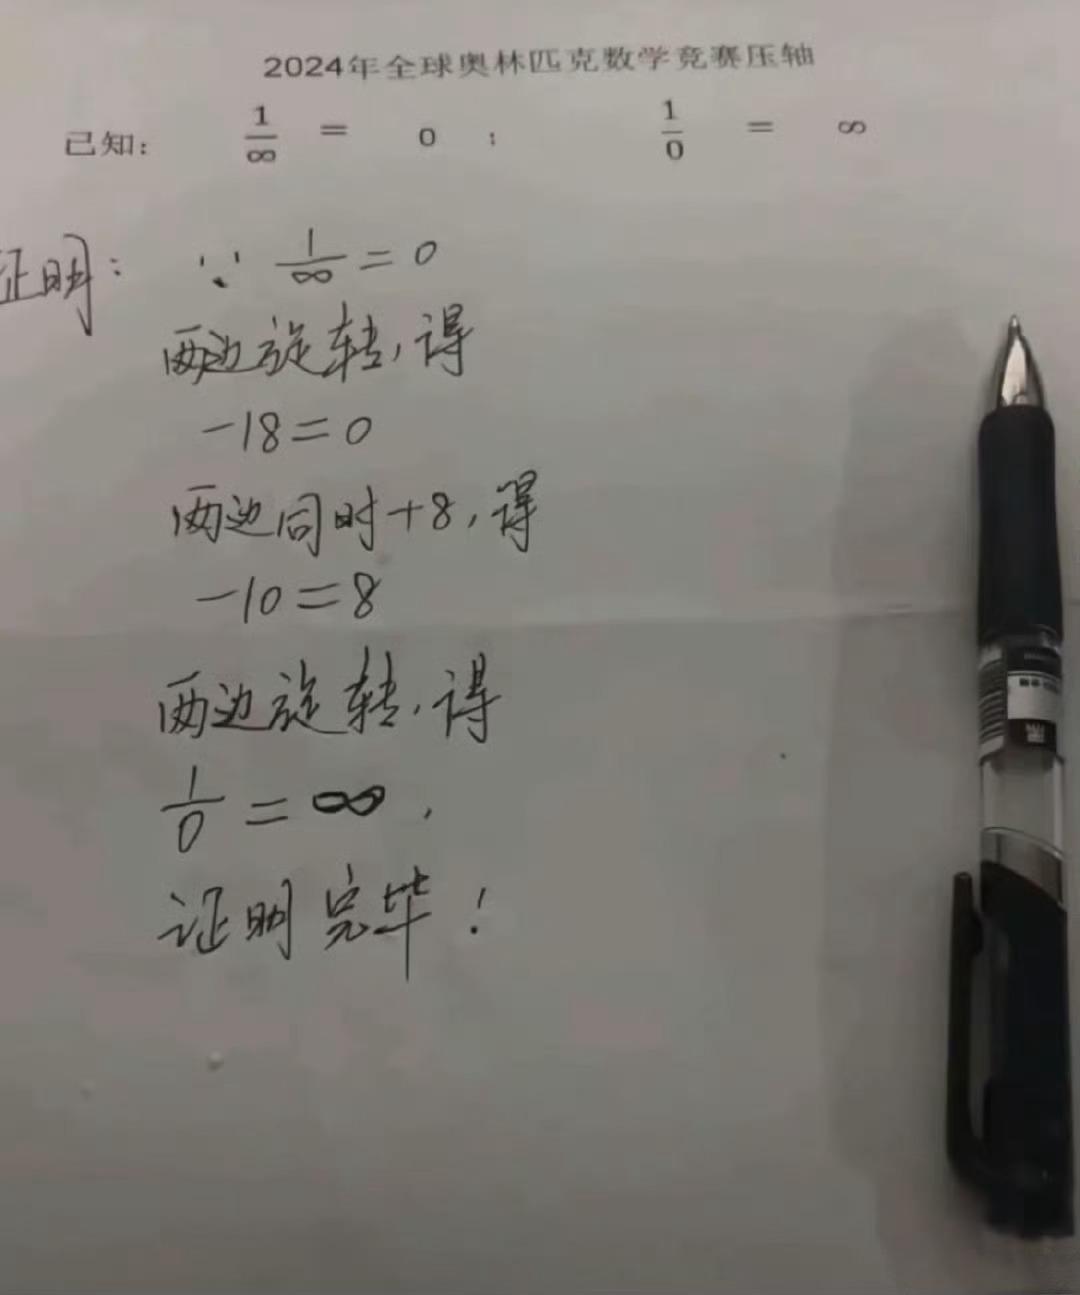 2024年全球奥林匹克数学竞赛压轴
已知： 1/∞ = 0 ； 1/0 = ∞
证明： ∵ 1/∞ = 0
两边旋转，得
-18=0
两边同时+8，得
-10=8
两边旋转，得
1/0 = ∞．
证明完毕！